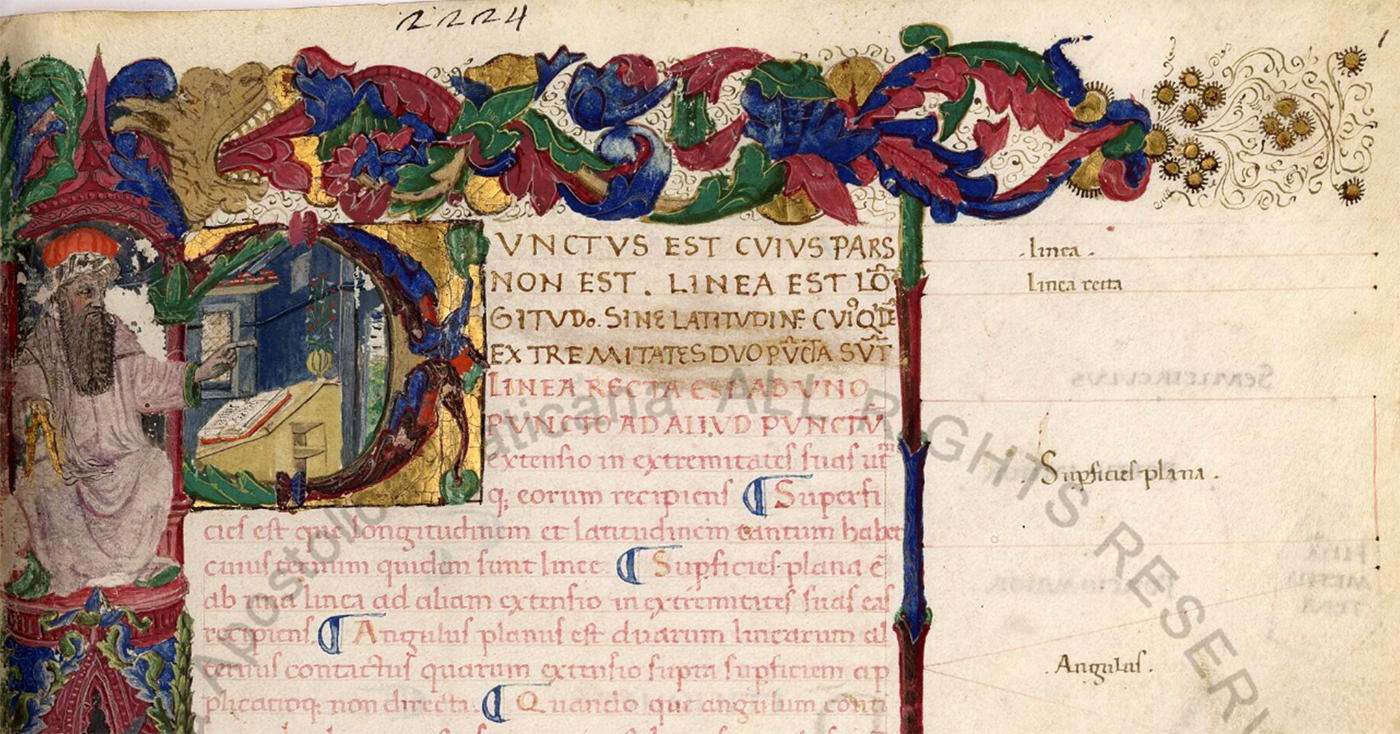 2224
1
VNCTVS EST CVIVS PARS
NON EST. LINEA EST LŌ
GITVDo. SINE LATITVDINE CVIQ̊DĒ
EXTREMITATES DVO PV̄CTA SV̄T
LINEA RECTA EST AB VNO
PVNCTO AD ALIVD PVNCTV̄
extensio in extremitates suas ut
q; eorum recipiens ¶ Superfi
cies est que longitudinem et latitudinem tantum habet
cuius termini quidem sunt linee. ¶ Supficies plana ē
ab una linea ad aliam extensio in extremitates suas eas
recipiens. ¶ Angulus planus est duarum linearum al
ternus contactus quarum extensio supra supficiem ap
plicatioq; non directa. ¶ Quando que angulum conti
. linea .
linea recta
Supficies plana .
Angulus .
Apostolic aticana ALL RIGHTS RESERV